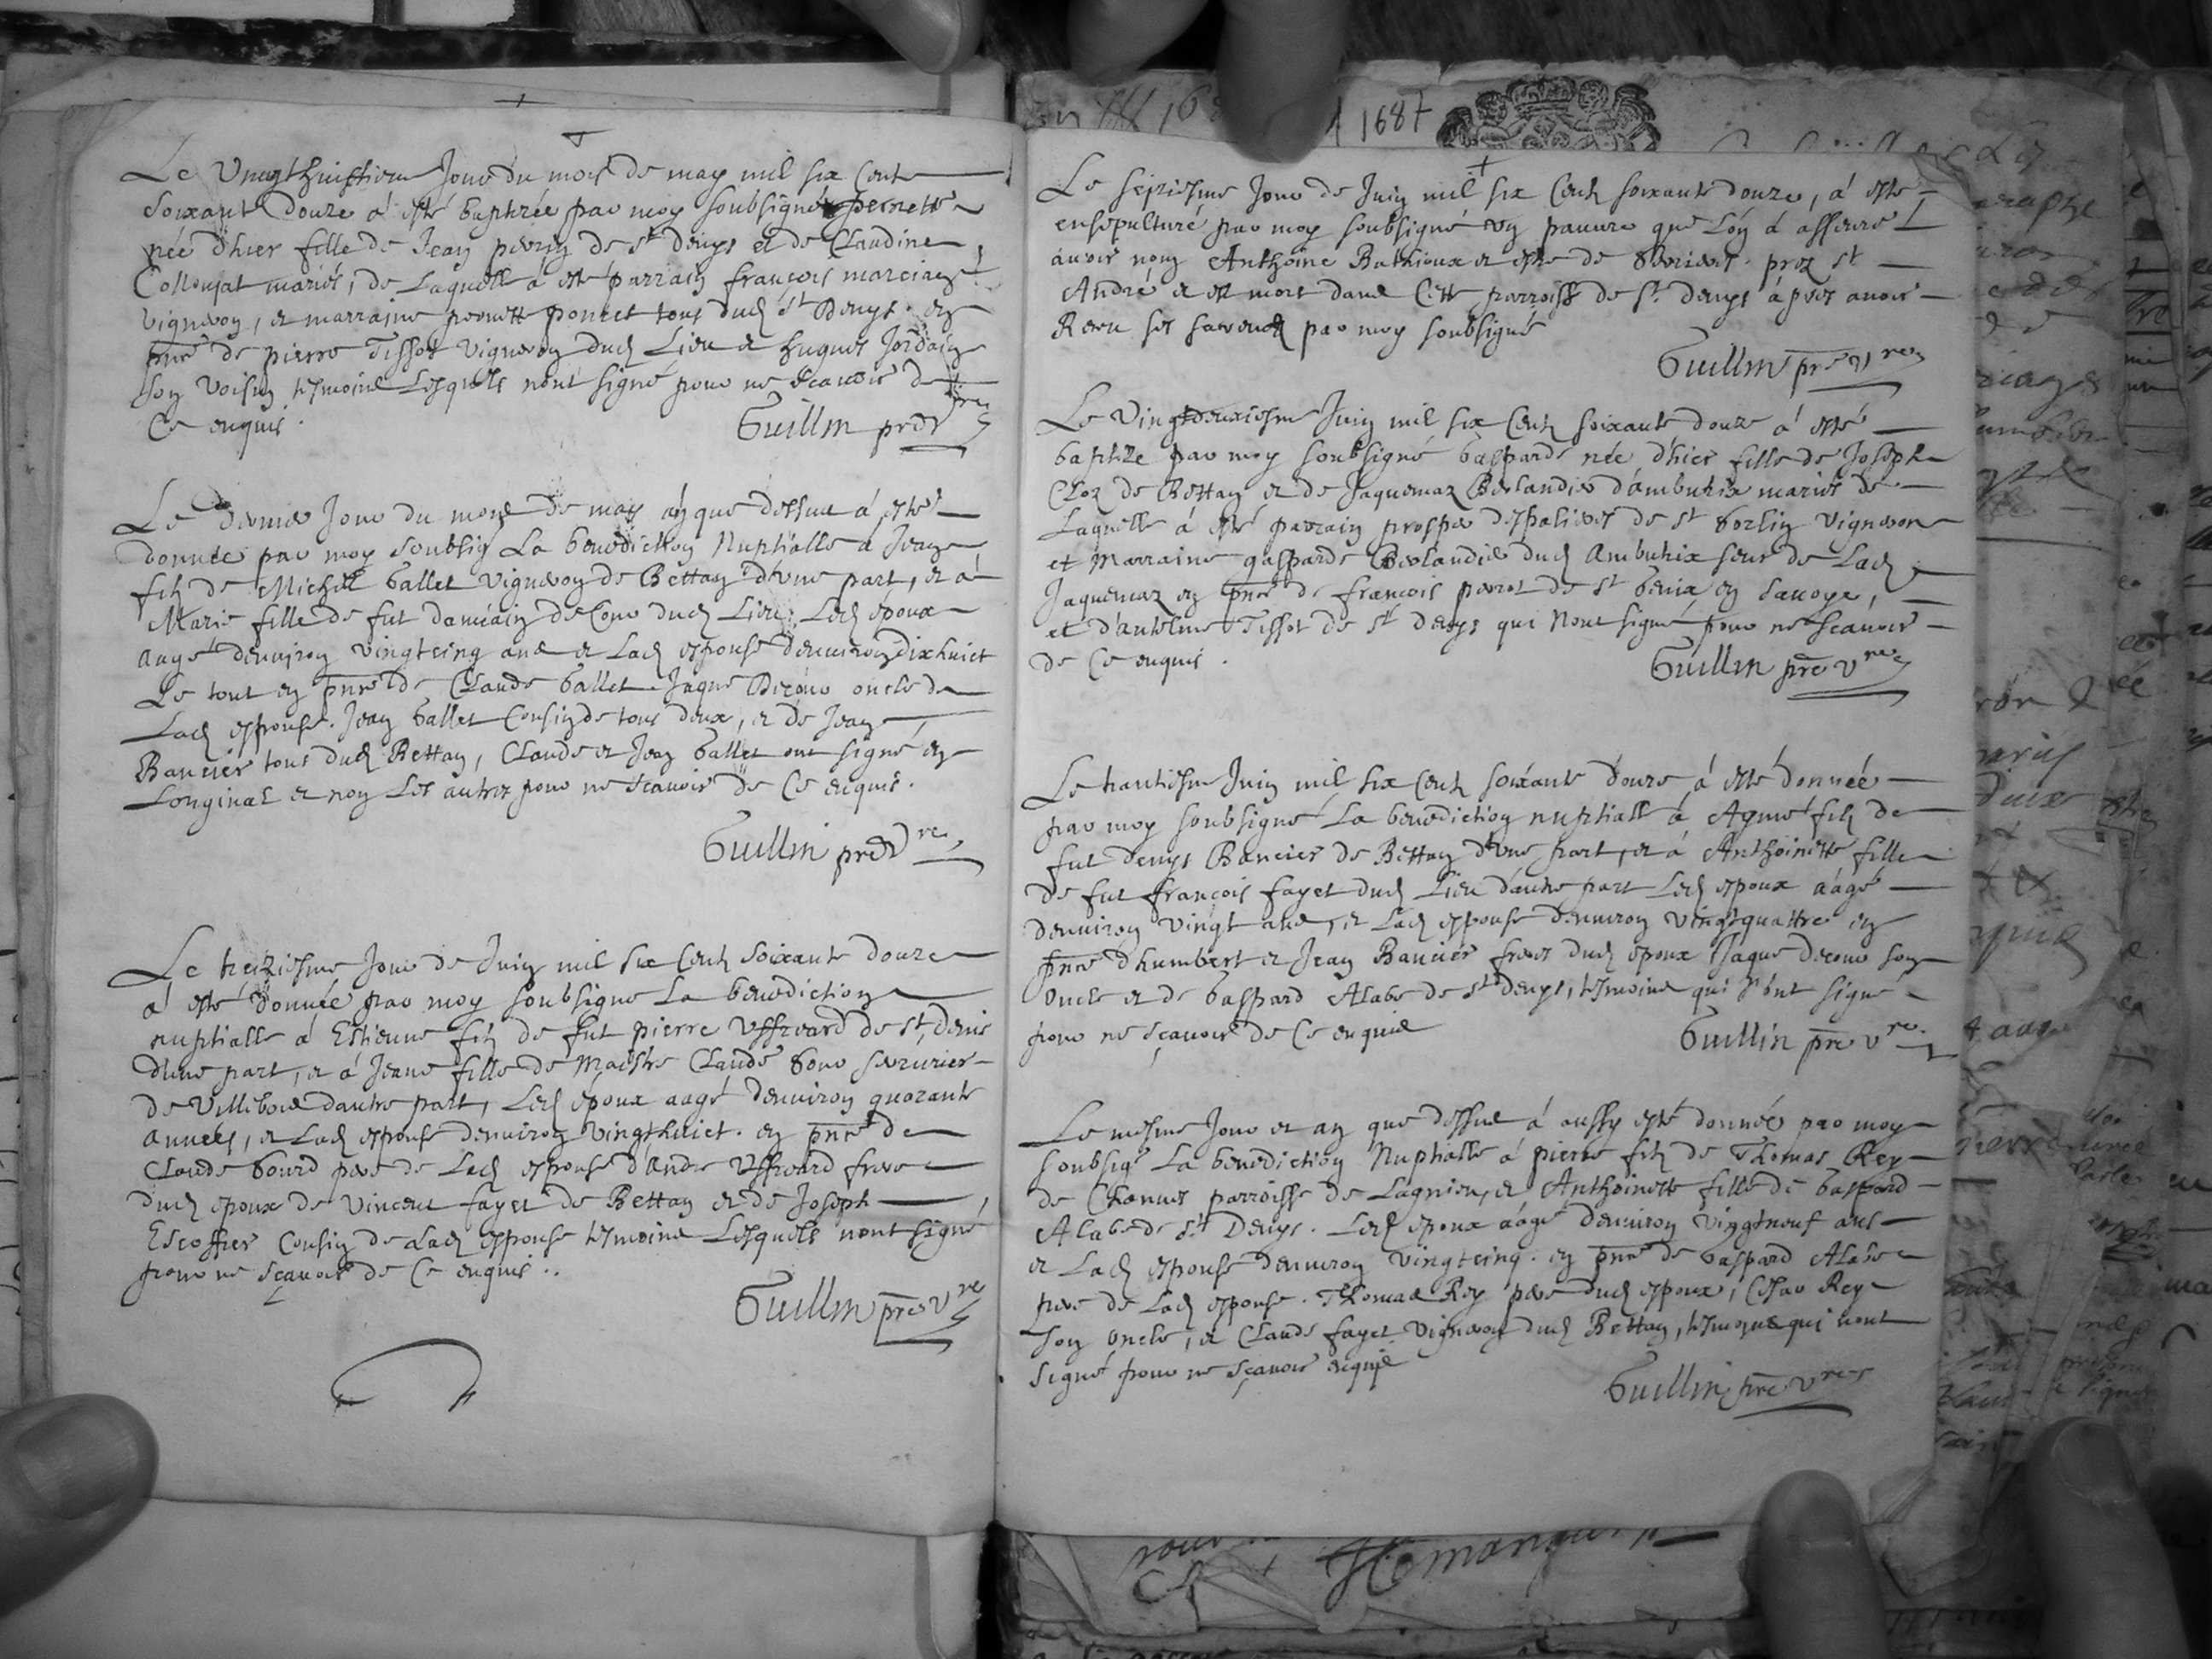 Le Vingthuictieme Jour du mois de may mil six Cent
soixante douze a esté baptizée par moy soubsigné pernette
née d'hier fille de Jean perrin de st denys et de Claudine
Collonjat mariés, de Laquelle a esté parrain françois marcian
vigneron, et marraine pernette poncet tous dud st Denys. en
pnce de pierre Tissot vigneron dud Lieu et hugues Jordain
son voisin tesmoins Lesquels n'ont signé pour ne scavoir de
Ce enquis.
Guillin pre vre
Le dernier Jour du mois de may an que dessus a esté
donnée par moy soubsig La benediction Nuptialle a Jean
filz de Michel Gallet vigneron de Bettan d'une part, et a
Marie fille de fut damiain deCour dud Lieu, Led époux
aagé denviron vingtcinq ans et Lad espouse denviron dixhuict
Le tout en pnce de Claude Gallet. Jaques Decour oncle de
Lad espouse. Jean Gallet Cousin de tous deux, et de Jean
Bancier tous dud Bettan, Claude et Jean Gallet ont signé en
Loriginal et non Les autres pour ne scavoir de Ce enquis.
Guillin pre vre
Le treiziesme Jour de Juin mil six Centz soixante douze
a esté donnée par moy soubsigné La benediction
nuptialle á Estienne filz de fut pierre Uffroard de st denis
d'une part, et á Jeane fille de Maistre Claude Gour serrurier
de Villebois dautre part, Led époux aagé denviron quarante
années, et Lad espouse denviron vingthuict. en pnce de
Claude Gourd pere de Lad espouse d'Andre Uffroard frere
dud epoux de Vincent fayet de Bettan et de Joseph
Escoffier Cousin de Lad espouse tesmoins Lesquels nont signé
pour ne sçavoir de Ce enquis..
Guillin pre vre
1687
Le sepziesme Jour de Juin mil six Centz soixante douze, á esté
ensepulturé par moy soubsigné un pauvre que L'on á asseuré
avoir nom Anthoine Bathioux et estre de prez st
André et est mort dans Cette parroisse de st denys á pres avoir
Receu ses par moy soubsigné
Guillin pre vre
Le Vingtdeuxiesme Juin mil six Centz soixante douze á esté
baptizée par moy soubsigné Gasparde née d'hier fille de Joseph
Cloz de Bettan et de Jaquemaz Berlandie d'ambutrix mariés de
Laquelle á esté parrain prosper despaliers de st Sorlin vigneron
et Marraine gasparde Berlandie dud Ambutrix seur de Lad
Jaquemaz en pnce de francois perrot de st Genix en Savoye,
et d'antelme Tissot de st denys qui Nont signé pour ne scavoir
de Ce enquis.
Guillin pre vre
Le trantiesme Juin mil six Centz soixante douze á esté donnée
par moy soubsigné La benediction nuptialle á Aymé filz de
fut denys Bancier de Bettan d'une part, et á Anthoinette fille
de fut françois fayet dud Lieu dautre part Led espoux áagé
denviron vingt ans, et Lad espouse denviron vingtquattre en
pnce dhumbert et Jean Bancier freres dud epoux Jaque decour son
oncle et de Gaspard Alabe de st denys, tesmoins qui n'ont signé
pour ne sçavoir de Ce enquis
Guillin pre vre
Le mesme Jour et an que dessus á aussy esté donnée par moy
soubsigé La benediction Nuptialle á pierre filz de Thomas Rey
de Chanves parroisse de Lagnieu, et Anthoinette fille de Gaspard
Alabe de st Denys. Led epoux aagé denviron vingtneuf ans
et Lad espouse denviron vingtcinq. en pnce de Gaspard Alabe
pere de Lad espouse. Thomas Rey pere dud espoux, Cesar Rey
son oncle, et Claude fayet vigneron dud Bettan, tesmoins qui nont
signé pour ne sçavoir enquis
Guillin pre vre